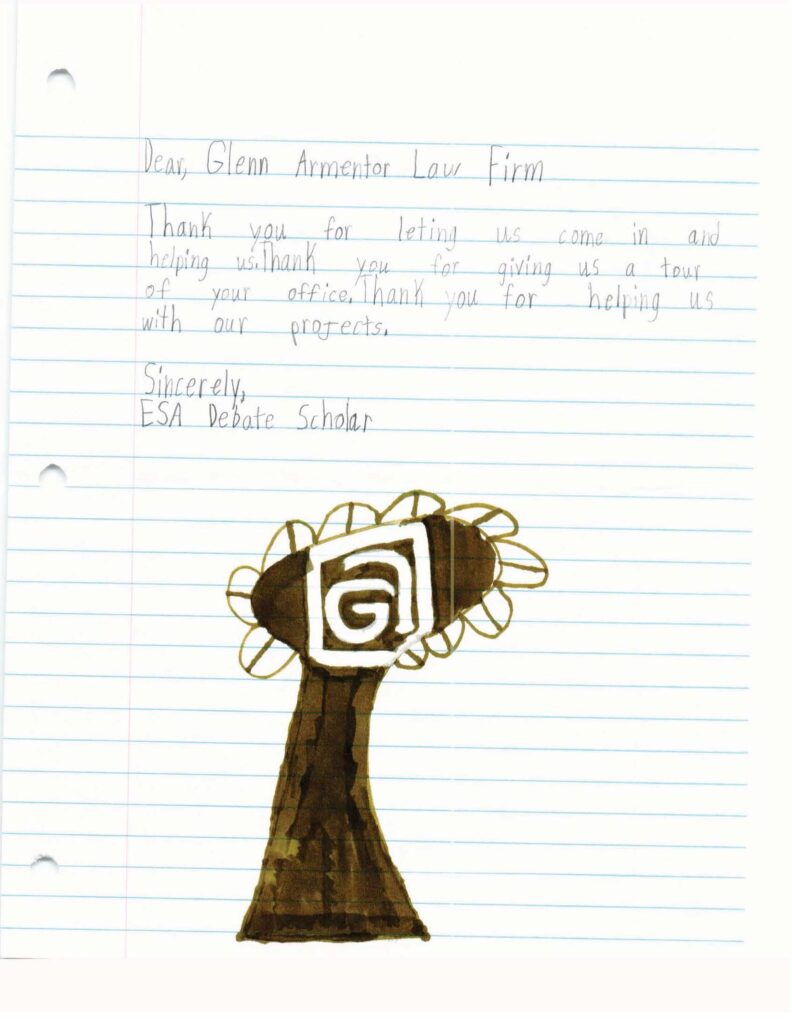 Dear, Glenn Armentor Law Firm
Thank you for leting us come in and
helping us.Thank you for giving us a tour
of your office.Thank you for helping us
with our projects.
Sincerely,
ESA Debate Scholar
G